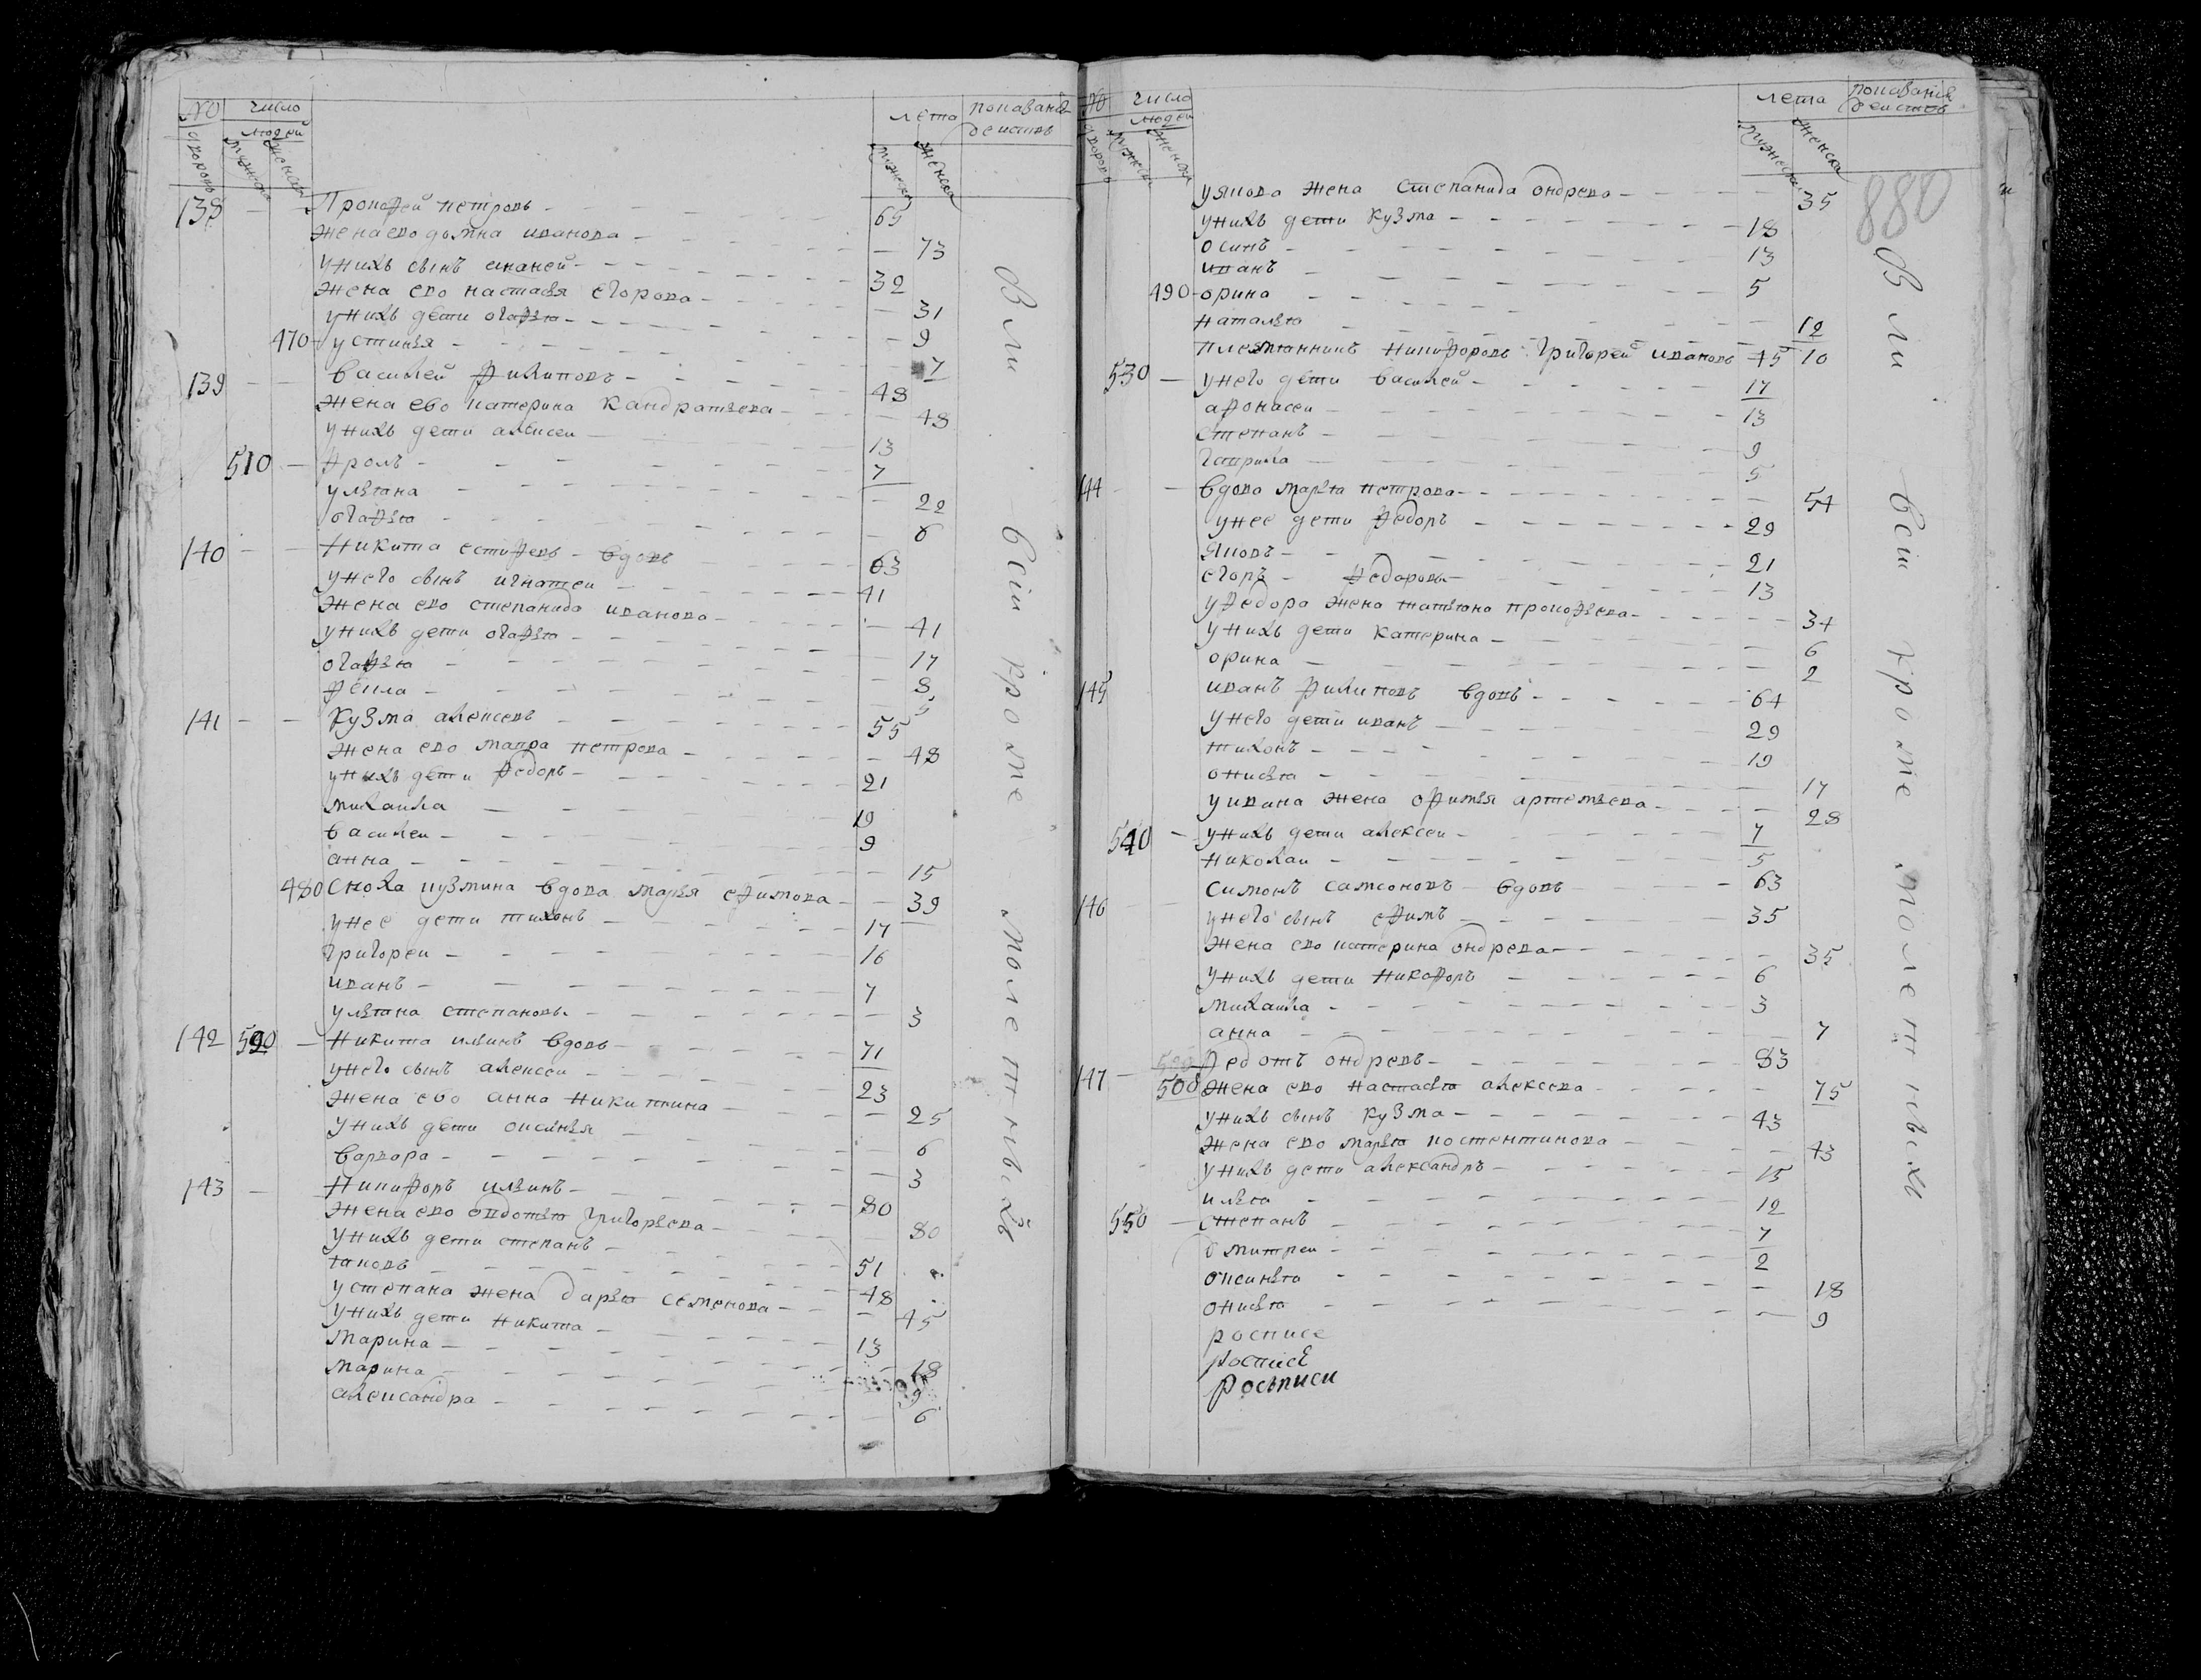 № число лета показаніе
дворовъ людей действъ
мужеска женска мужеска женска
138 Прокофей петровъ 65
жена ево домна иванова 73
у нихъ сынъ ананей 32
жена ево настасья егорова 31
у нихъ дети огафья 9
470 устинья 7
139 василей филиповъ 48
жена ево катерина кандратьева 48
у нихъ дети алексеи 13
510 фролъ 7
ульяна 22
огафья 6
140 Никита естифевъ вдовъ 63
у него сынъ игнатеи 41
жена ево степанида иванова 41
у нихъ дети огафья 17
огафья 8
фекла 5
141 кузма алексевъ 55
жена ево мавра петрова 48
у нихъ дети федоръ 21
михаила 19
василеи 9
анна 15
480 сноха кузмина вдова марья ефимова 39
у нее дети тихонъ 17
григореи 16
иванъ 7
ульяна степановы 3
142 520 Никита ильинъ вдовъ 71
у него сынъ алексеи 23
жена ево анна никитина 25
у нихъ дети оксинья 6
варвара 3
143 Никифоръ ильинъ 80
жена ево овдотья григорьева 80
у нихъ дети степанъ 51
яковъ 48
у степана жена дарья семенова 45
у нихъ дети никита 13
марина 18
марина 9
александра 6
Были всіи кроме малетныхъ
№ число лета показаніе
дворовъ людей действъ
мужеска женска мужеска женска
880
у якова жена степанида ондрева 35
у нихъ дети кузма 18
осипъ 13
иванъ 5
490 орина 12
наталья 10
племяннинъ никифоровъ григорей ивановъ 45
530 у него дети василей 17
афонасеи 13
степанъ 9
гаврила 5
144 вдова марья петрова 54
у нее дети федоръ 29
яковъ 21
егоръ федоровы 13
у федора жена татьяна прокофьева 34
у нихъ дети катерина 6
орина 2
145 иванъ филиповъ вдовъ 64
у него дети иванъ 29
тихонъ 19
онисья 17
у ивана жена офимья артемьева 28
540 у нихъ дети алексеи 7
николаи 5
146 симонъ самсоновъ вдовъ 63
у него сынъ ефимъ 35
жена ево катерина ондрева 35
у нихъ дети никофоръ 6
михаила 3
анна 7
147 федотъ ондревъ 83
500 жена ево настасья алексева 75
у нихъ сынъ кузма 43
жена ево марья костентинова 43
у нихъ дети александръ 15
илья 12
550 степанъ 7
дмитреи 2
оксинья 18
онисья 9
росписе
росписе
росьписи
Были всіи кроме малетныхъ